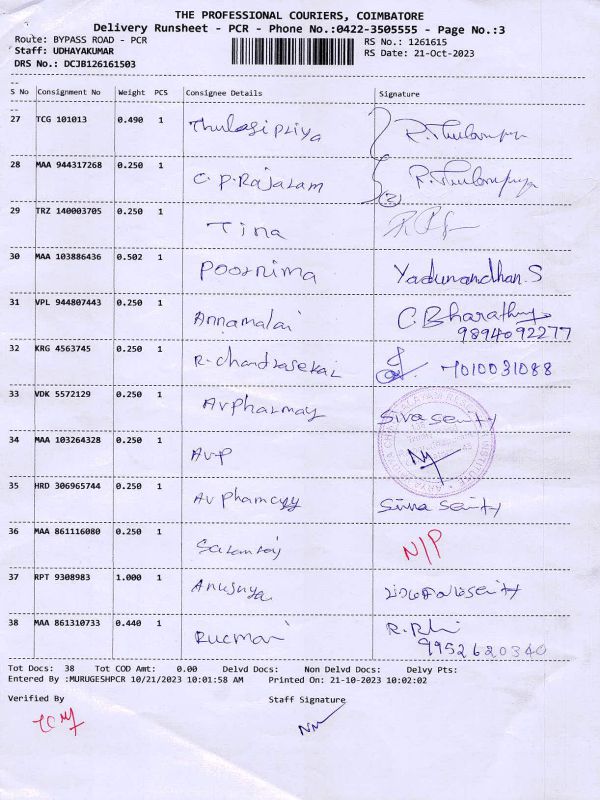 THE PROFESSIONAL COURIERS, COIMBATORE
Delivery Runsheet - PCR - Phone No.:0422-3505555 - Page No.:3
Route: BYPASS ROAD - PCR RS No.: 1261615
Staff: UDHAYAKUMAR RS Date: 21-Oct-2023
DRS No.: DCJB126161503
S No Consignment No Weight PCS Consignee Details Signature
27 TCG 101013 0.490 1 Thulasipriya R. Thulasipriya
28 MAA 944317268 0.250 1 C.P. Rajaram R. Thulasipriya
(2)
29 TRZ 140003705 0.250 1 Tina
30 MAA 103886436 0.502 1 Poornima Yadunandhan.S
31 VPL 944807443 0.250 1 Annamalai C. Bharathy
9894092277
32 KRG 4563745 0.250 1 R. chandrasekar 7010031088
33 VDK 5572129 0.250 1 Avpharmay Siva
34 MAA 103264328 0.250 1 AVP
35 HRD 306965744 0.250 1 Av
36 MAA 861116080 0.250 1 N/P
37 RPT 9308983 1.000 1 Anusuya
38 MAA 861310733 0.440 1 Rucmani R.
9952620340
Tot Docs: 38 Tot COD Amt: 0.00 Delvd Docs: Non Delvd Docs: Delvy Pts:
Entered By :MURUGESHPCR 10/21/2023 10:01:58 AM Printed On: 21-10-2023 10:02:02
Verified By Staff Signature